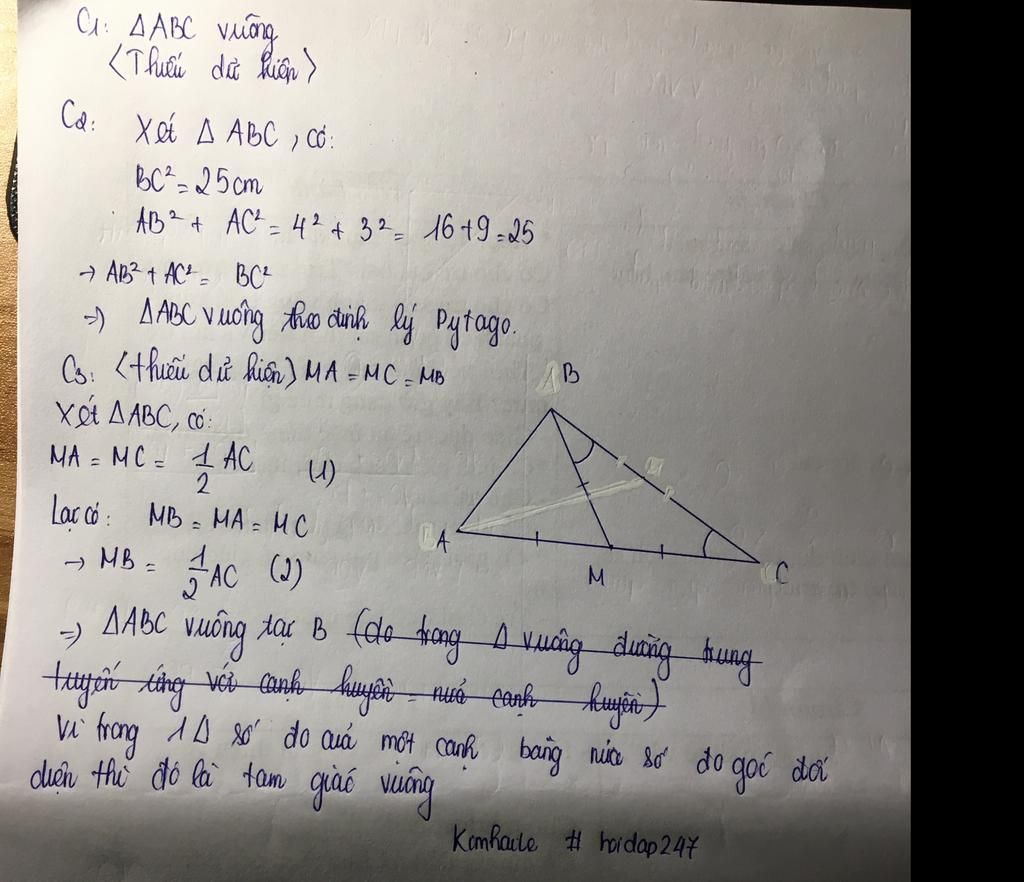 C1: ΔABC vuông
<Thiếu dữ kiện>
C2: Xét Δ ABC, có:
BC² = 25cm
AB² + AC² = 4² + 3² = 16+9=25
→ AB² + AC² = BC²
=> ΔABC vuông theo định lý Pytago.
C3: <thiếu dữ kiện> MA = MC = MB
Xét ΔABC, có:
MA = MC = 1/2 AC (1)
Lại có: MB = MA = MC
→ MB = 1/2 AC (2)
=> ΔABC vuông tại B (do trong Δ vuông đường trung
tuyến ứng với cạnh huyền = nửa cạnh huyền)
Vì trong 1Δ số đo của một cạnh bằng nửa số đo góc đối
diện thì đó là tam giác vuông
B
A
M
C
# hoidap247